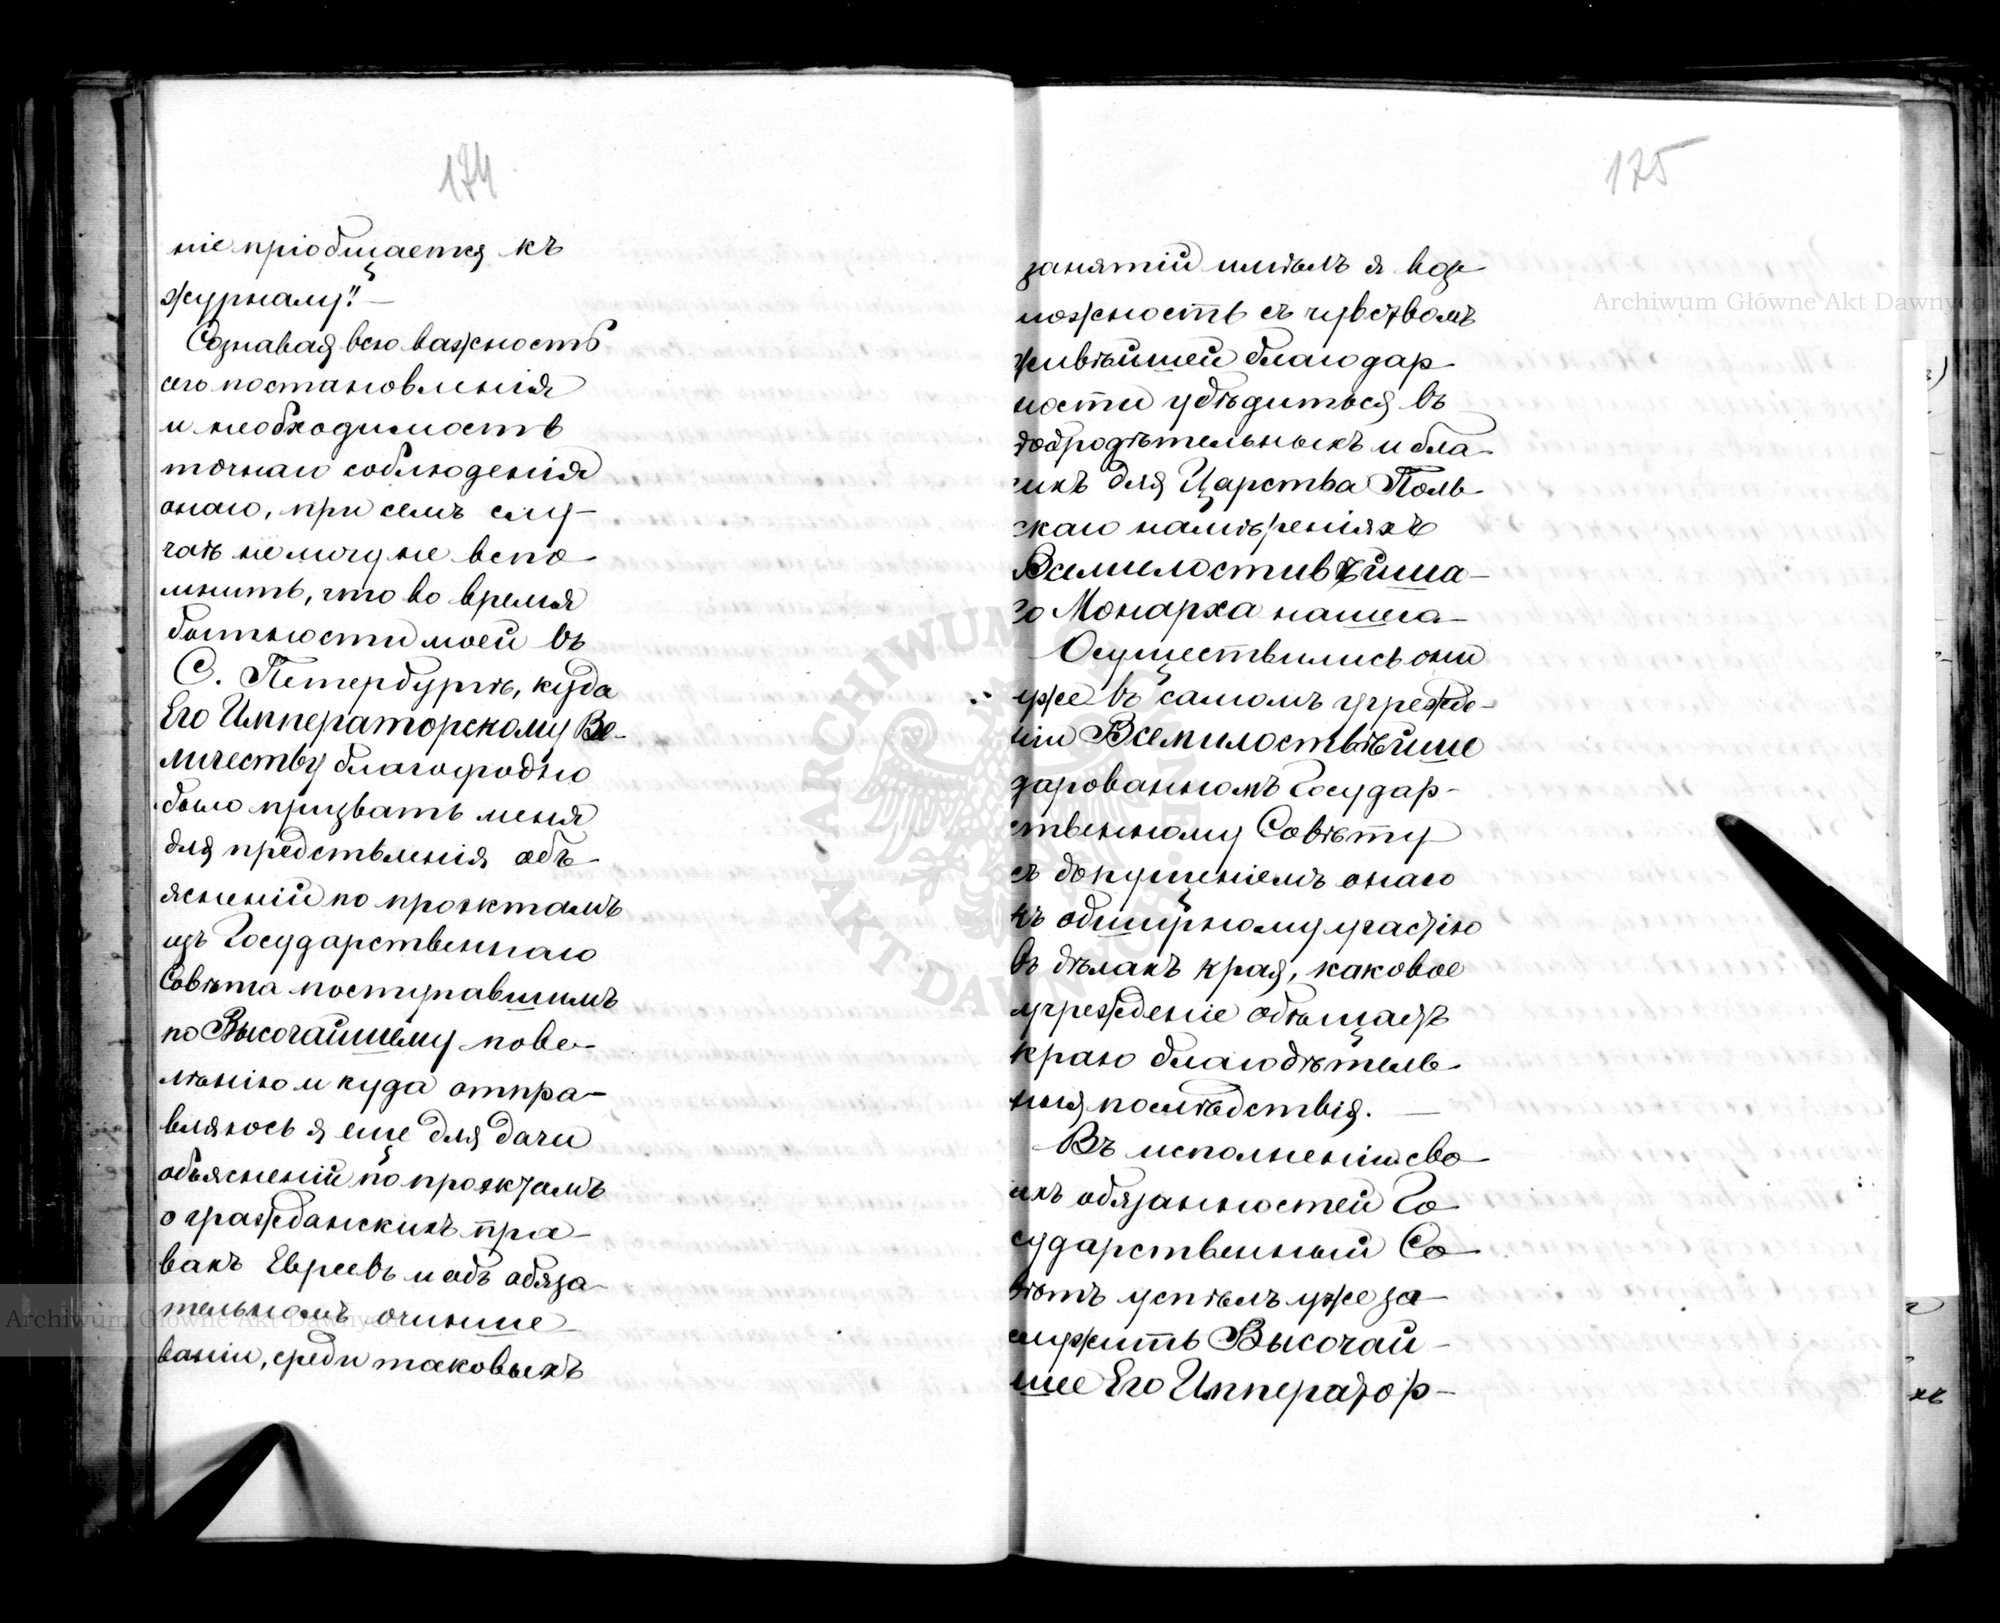 174
ніе пріобщается къ
журналу". —
Сознавая всю важность
сего постановленія
и необходимость
точнаго соблюденія
онаго, при семъ слу-
чаѣ не могу не вспо-
мнить, что во время
бытности моей въ
С. Петербургѣ, куда
Его Императорскому Ве-
личеству благоугодно
было призвать меня
для предствленія объ-
ясненій по проэктамъ
изъ Государственнаго
Совѣта поступавшимъ
по Высочайшему пове-
лѣнію и куда отпра-
вляюсь я еще для дачи
объясненій по проэктамъ
о гражданскихъ пра-
вахъ Евреевъ и объ обяза-
тельномъ очинше-
ваніи, среди таковыхъ
175
занятій имѣлъ я воз-
можность съ чувствомъ
живѣйшей благодар-
ности убѣдиться въ
добродѣтельныхъ и бла-
гихъ для Царства Поль-
скаго намѣреніяхъ
Всемилостивѣйша-
го Монарха нашего—
Осуществились они
уже въ самомъ учрежде-
ніи Всемилоствѣйше
дарованномъ Государ-
ственному Совѣту
съ допущеніемъ онаго
къ обширному участію
въ дѣлахъ края, каковое
учрежденіе обѣщаетъ
краю благодѣтель-
ныя послѣдствія. —
Въ исполненіи сво-
ихъ обязанностей Го-
сударственный Со-
вѣтъ успѣлъ уже за-
служить Высочай-
шее Его Император-
Archiwum Główne Akt Dawnych
Archiwum Główne Akt Dawnych
ARCHIWUM GŁÓWNE · AKT DAWNYCH ·